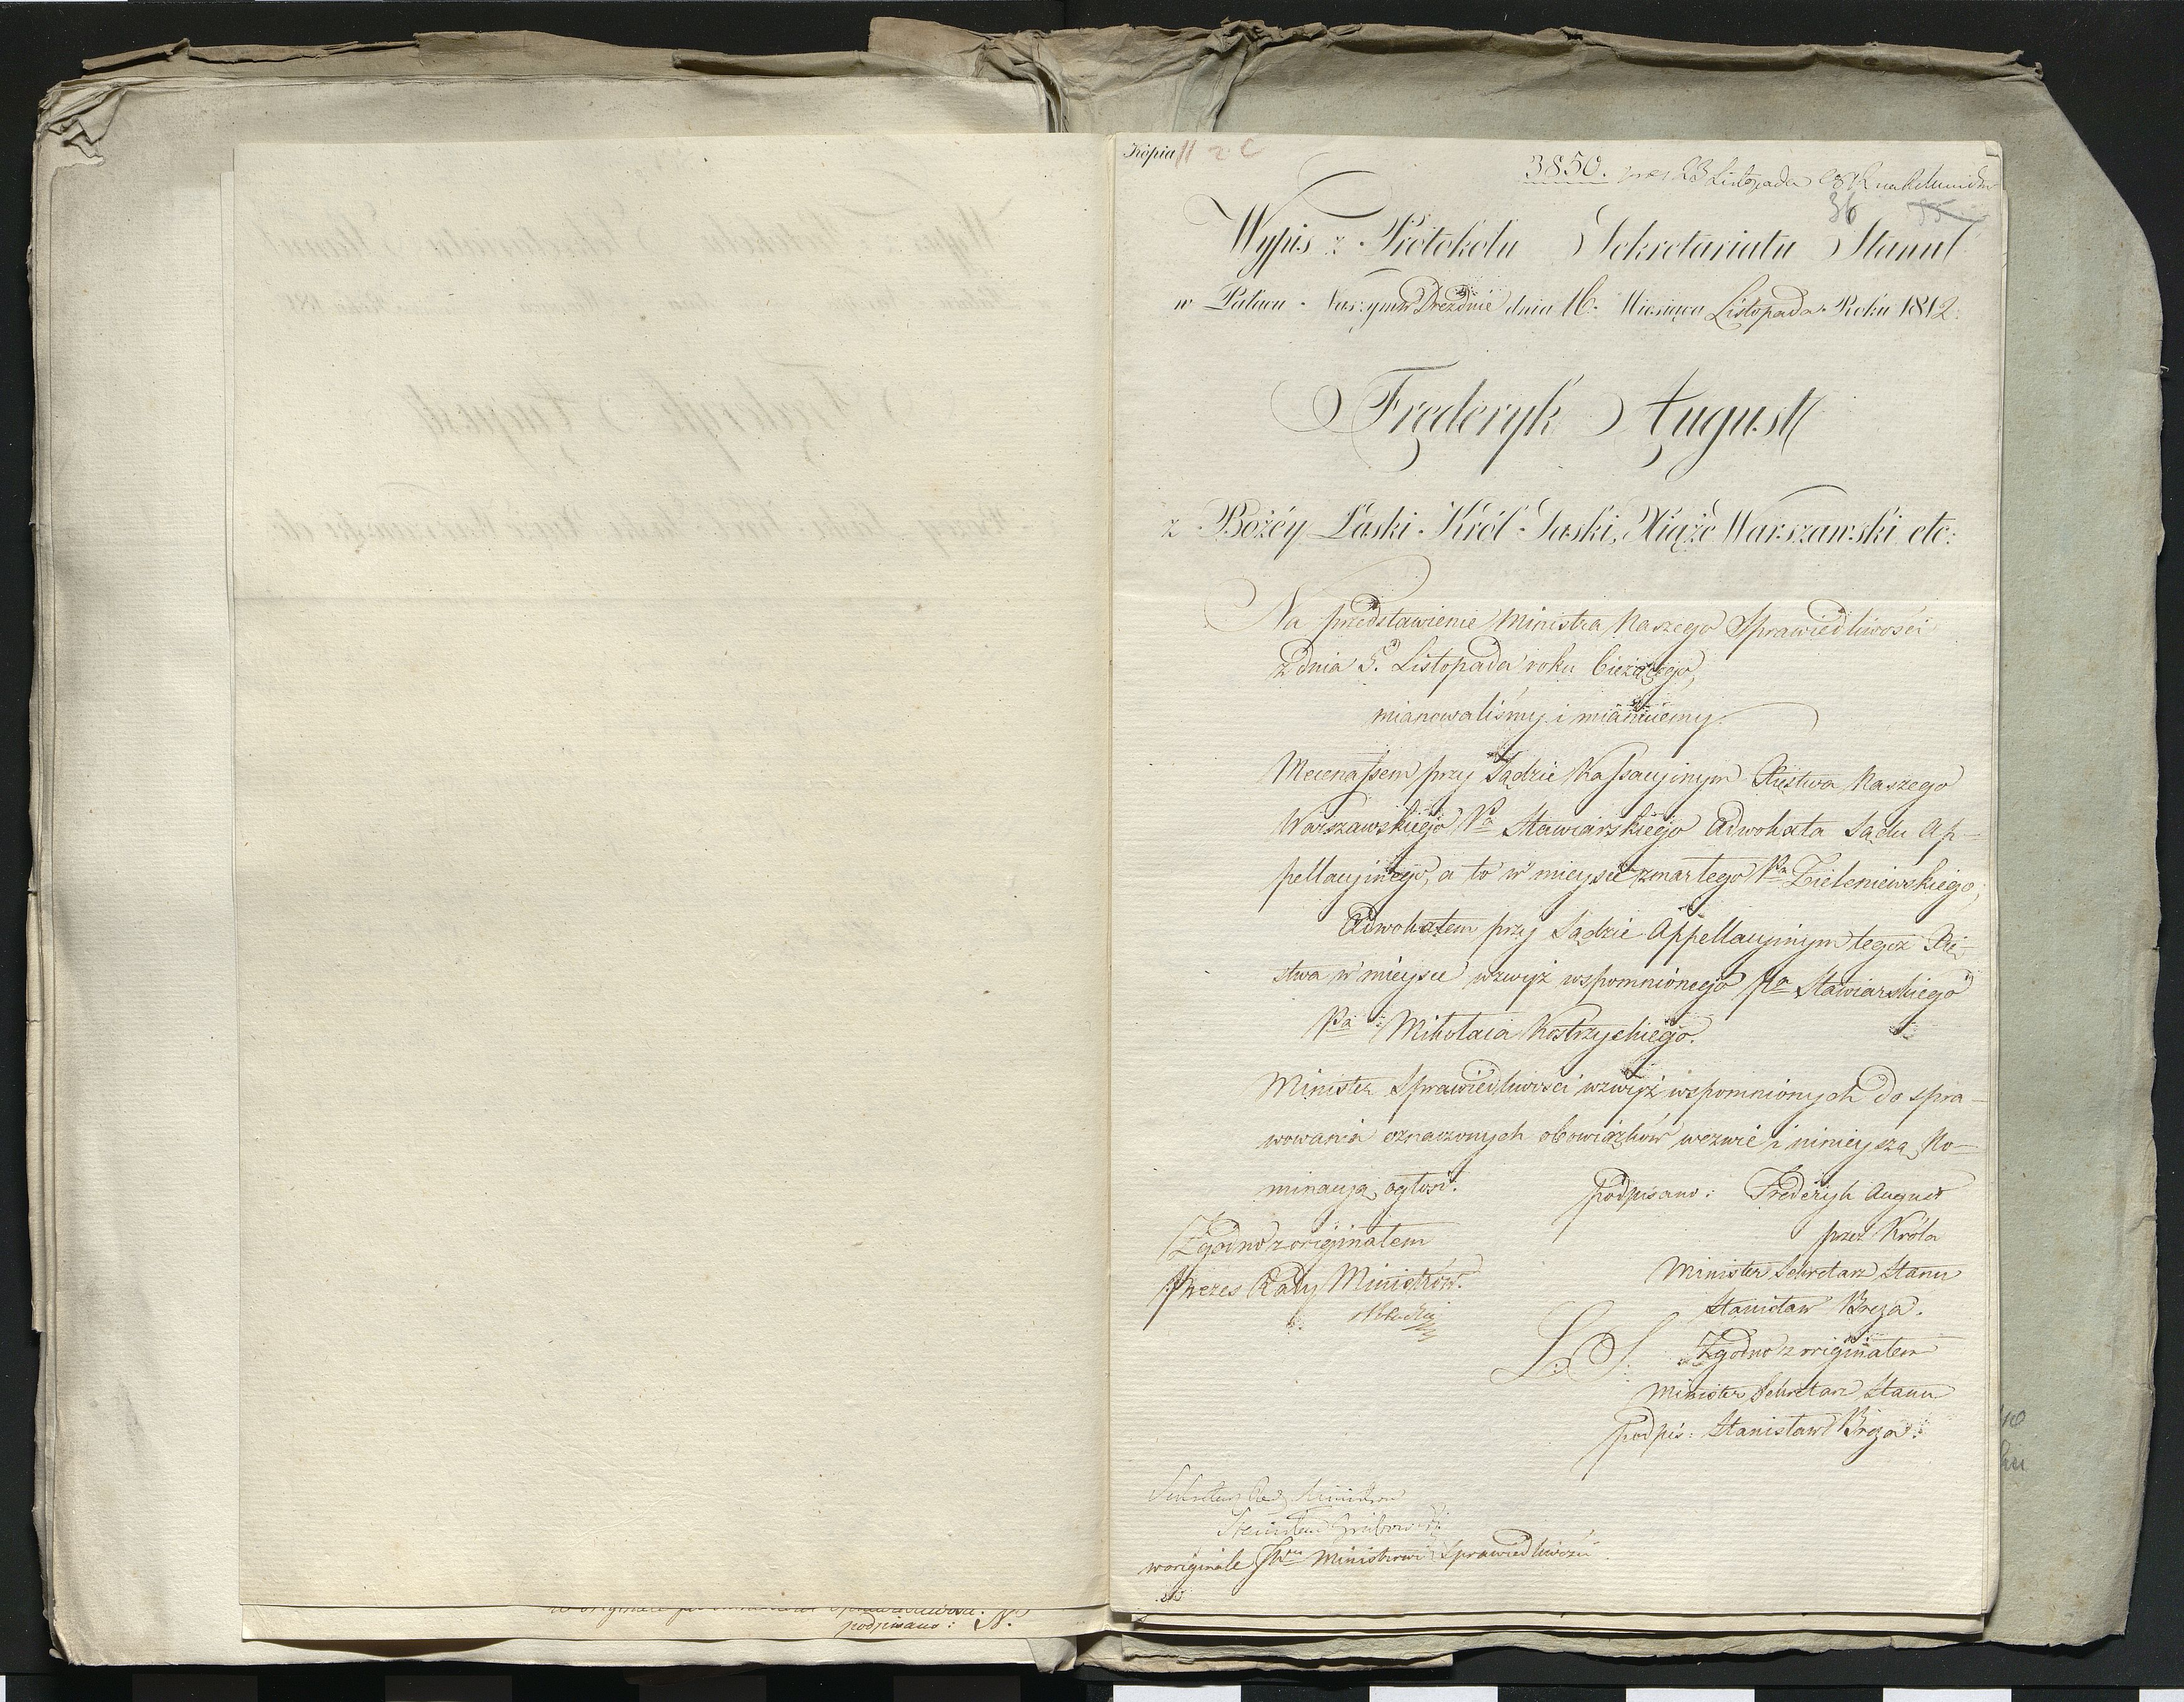 Kopia
3850. 23 Listopada
36 35
Wypis z Protokolu Sekretariatu Stanu
w Palacu Naszym w Dreźnie dnia 16. Miesiąca Listopada Roku 1812.
Fryderyk August
z Bożéy Łaski Król Saski, Xiąże Warszawski etc:
Na przedstawienie Ministra Naszego Sprawiedliwości
z dnia 5. Listopada roku bieżącego,
mianowaliśmy i mianuiemy.
Mecenassem przy Sądzie Kassacyinym Xięstwa Naszego
Warszawskiego Pa Stawiarskiego Adwokata Sądu Ap-
pellacyinego, a to w mieysce zmarłego Pa Zieleniewskiego,
Adwokatem przy Sądzie Appellacyinym tegoż Xię-
stwa w mieysce wzwyż wspomnionego Pa Stawiarskiego
Pa Mikołaia Kostrzyckiego.
Minister Sprawiedliwości wzwyż wspomnionych do spra-
wowania oznaczonych obowiązków wezwie i ninieyszą No-
minacyą ogłosi.
podpisano: Frederyk August
przez Króla
Minister Sekretarz Stanu
Stanisław Breza.
Zgodno z originałem
Prezes Rady Ministrów.
L. S.
Zgodno z originałem
Minister Sekretarz Stanu
podpis: Stanisław Breza.
Sekretarz Rady Ministrów
Stanisław Grabowski
w originale JWmu Ministrowi Sprawiedliwości
podpisano: N.